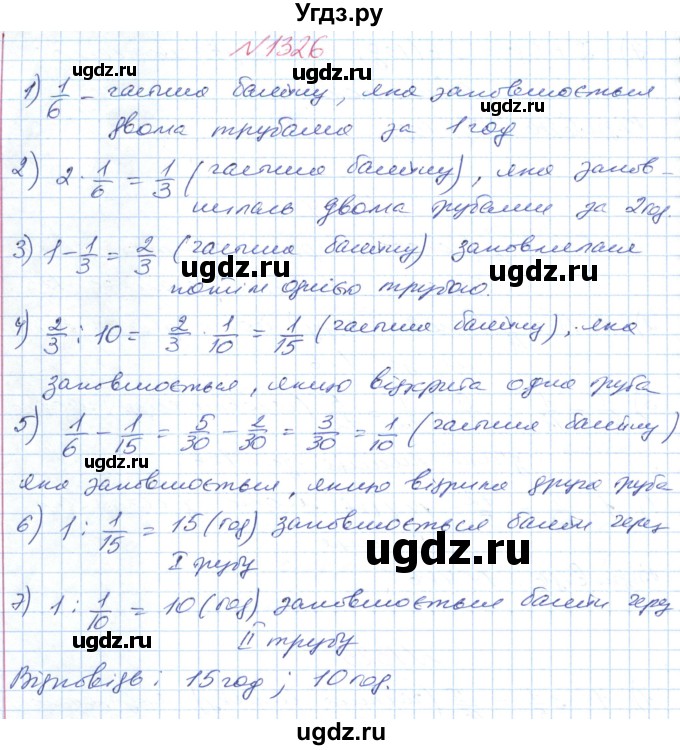 Угдз.ру
№1326
1) 1/6 – частина басейну, яка заповнюється
двома трубами за 1 год
2) 2 · 1/6 = 1/3 (частина басейну), яка запов-
нилась двома трубами за 2 год.
3) 1 – 1/3 = 2/3 (частина басейну) заповнилася
потім однією трубою.
4) 2/3 : 10 = 2/3 · 1/10 = 1/15 (частина басейну), яка
заповнюється, якщо відкрита одна труба
5) 1/6 – 1/15 = 5/30 – 2/30 = 3/30 = 1/10 (частина басейну)
яка заповнюється, якщо відкрита друга труба
6) 1 : 1/15 = 15 (год) заповнюється басейн через
I трубу
7) 1 : 1/10 = 10 (год) заповнюється басейн через
II трубу
Відповідь: 15 год; 10 год.
ugdz.ru
ugdz.ru
ugdz.ru
ugdz.ru
ugdz.ru
ugdz.ru
ugdz.ru
ugdz.ru
ugdz.ru
ugdz.ru
ugdz.ru
ugdz.ru